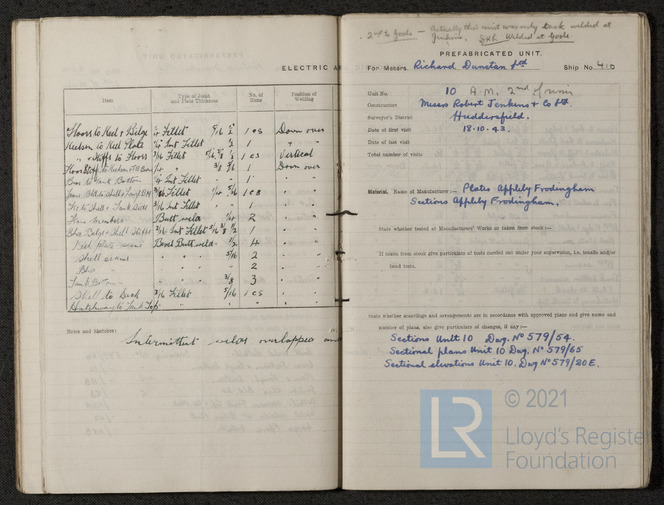 ELECTRIC A
Item
Type of Joint and Plate Thickness
No. of Runs
Position of Welding
Floors to Keel & Bilge ¼ Fillet 5/16 ½ 1 es Down over
Keelson to Keel Plate ¼ Int Fillet ½ 1 " "
" Stiffs to Floors 3/16 Fillet 1 es Vertical
3/8 5/16 1 Down over
to Tank Bottom ¼ Int Fillet " 1 "
3/16 Fillet 1 es "
3/16 Int Fillet " 1 "
Butt weld ¼ 2 "
Bilge & Shell Stiffs 3/16 Int Fillet 1 "
Keel plate seams Bevel Butt weld ½ 4 "
Shell seams " " 5/16 2 "
" " " 2 "
Tank Bottom " " 3/8 3 "
Shell to Deck 3/16 Fillet 5/16 1 es "
Hatchway to Tank Top " " " "
Notes and Sketches:
Intermittent welds overlapped and
2nd to Goole — Actually this unit was only tack welded at
Jenkins. Welded at Goole
PREFABRICATED UNIT.
For Messrs. Richard Dunston Ltd Ship No. 410
Unit No. 10 A.M. 2nd of
Constructors Messrs Robert Jenkins & Co Ltd
Surveyor's District Huddersfield.
Date of first visit 18.10.43.
Date of last visit
Total number of visits
Material. Name of Manufacturer:— Plates Appleby Frodingham
Sections Appleby Frodingham.
State whether tested at Manufacturers' Works or taken from stock:—
If taken from stock give particulars of tests carried out under your supervision, i.e. tensile and/or
bend tests.
State whether scantlings and arrangements are in accordance with approved plans and give name and
number of plans, also give particulars of changes, if any:—
Sections Unit 10 Dwg. No 579/54.
Sectional plans Unit 10 Dwg. No 579/65
Sectional elevations Unit 10. Dwg No 579/20E.
LR
© 2021
Lloyd's Register
Foundation